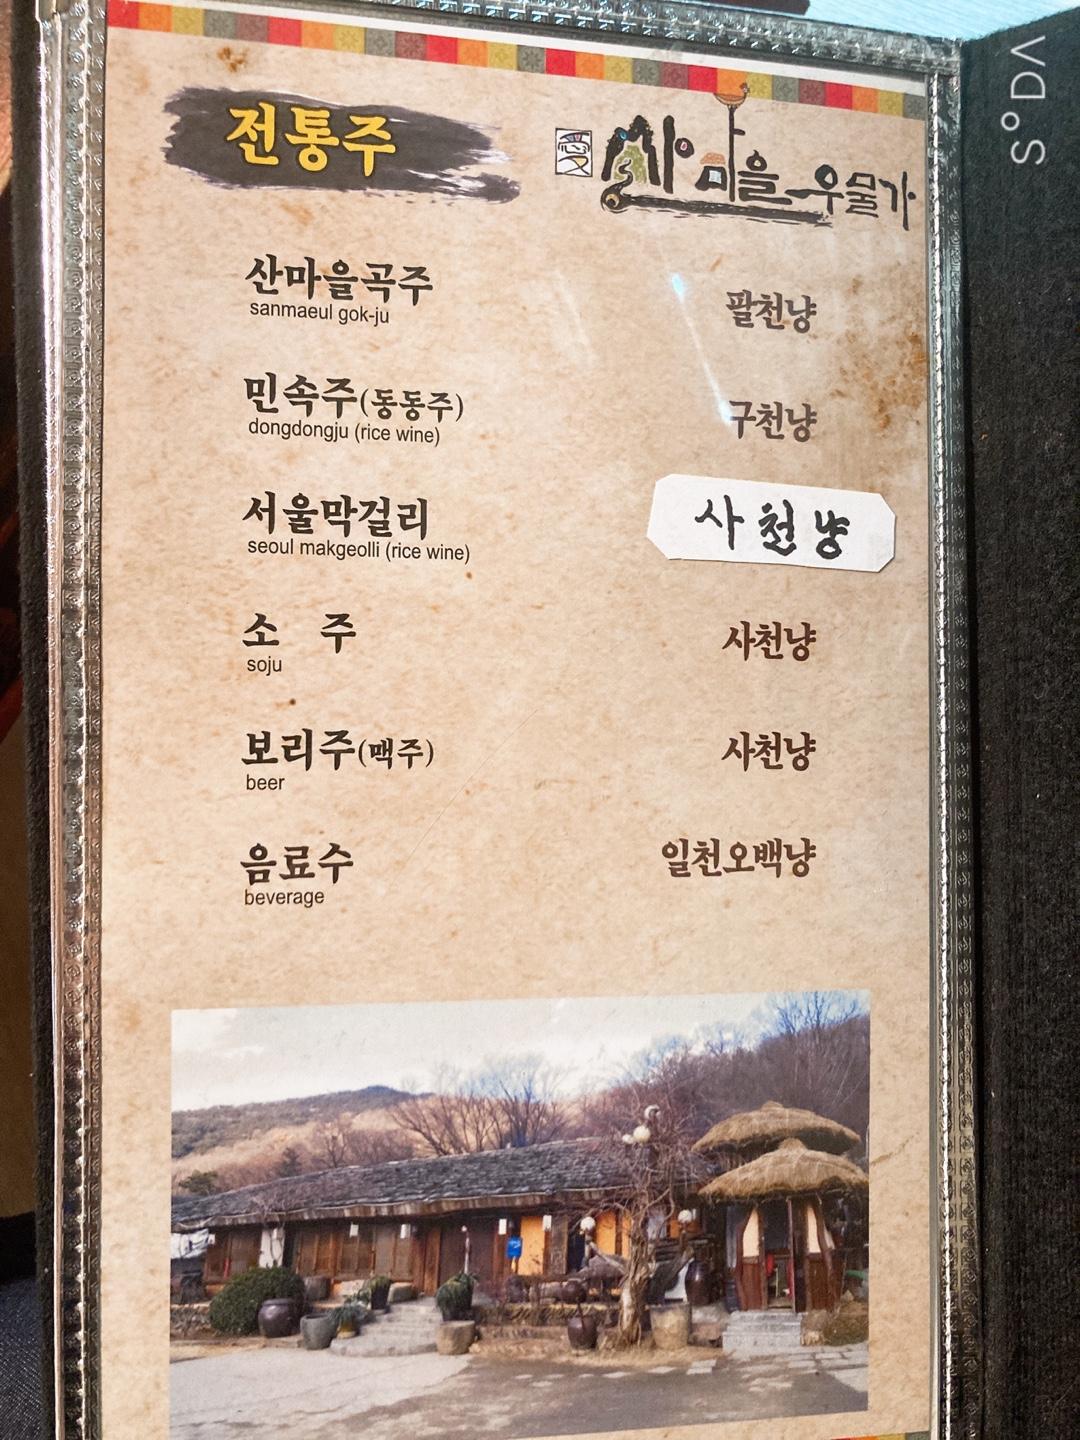 전통주
산마을 우물가
산마을곡주
sanmaeul gok-ju
팔천냥
민속주(동동주)
dongdongju (rice wine)
구천냥
서울막걸리
seoul makgeolli (rice wine)
사천냥
소 주
soju
사천냥
보리주(맥주)
beer
사천냥
음료수
beverage
일천오백냥
SODA